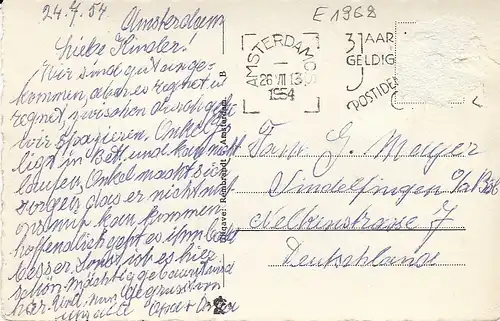 24.7.54. Amsterdam
Liebe Kinder!
Wir sind gut ange-
kommen, aber es regnet u
regnet, zwischen durch geh
wir spazieren. Onkel
liegt im Bett und kann nicht
laufen, Onkel macht sich
sorgen das er nicht mit
uns mit kan kommen,
hoffendlich geht es ihm bald
besser. Sonst ist es hier
schön. mächtig gebaut und
hier sind nur
E 1968
AMSTERDAM CS
26 VII 13
1954
3 JAAR
GELDIG
POSTIDE
Fam. G. Mayer
Sindelfingen a/ Böb
Nelkenstrasse 7
Deutschland
Uitgave: Rembrandt - Amsterdam
B